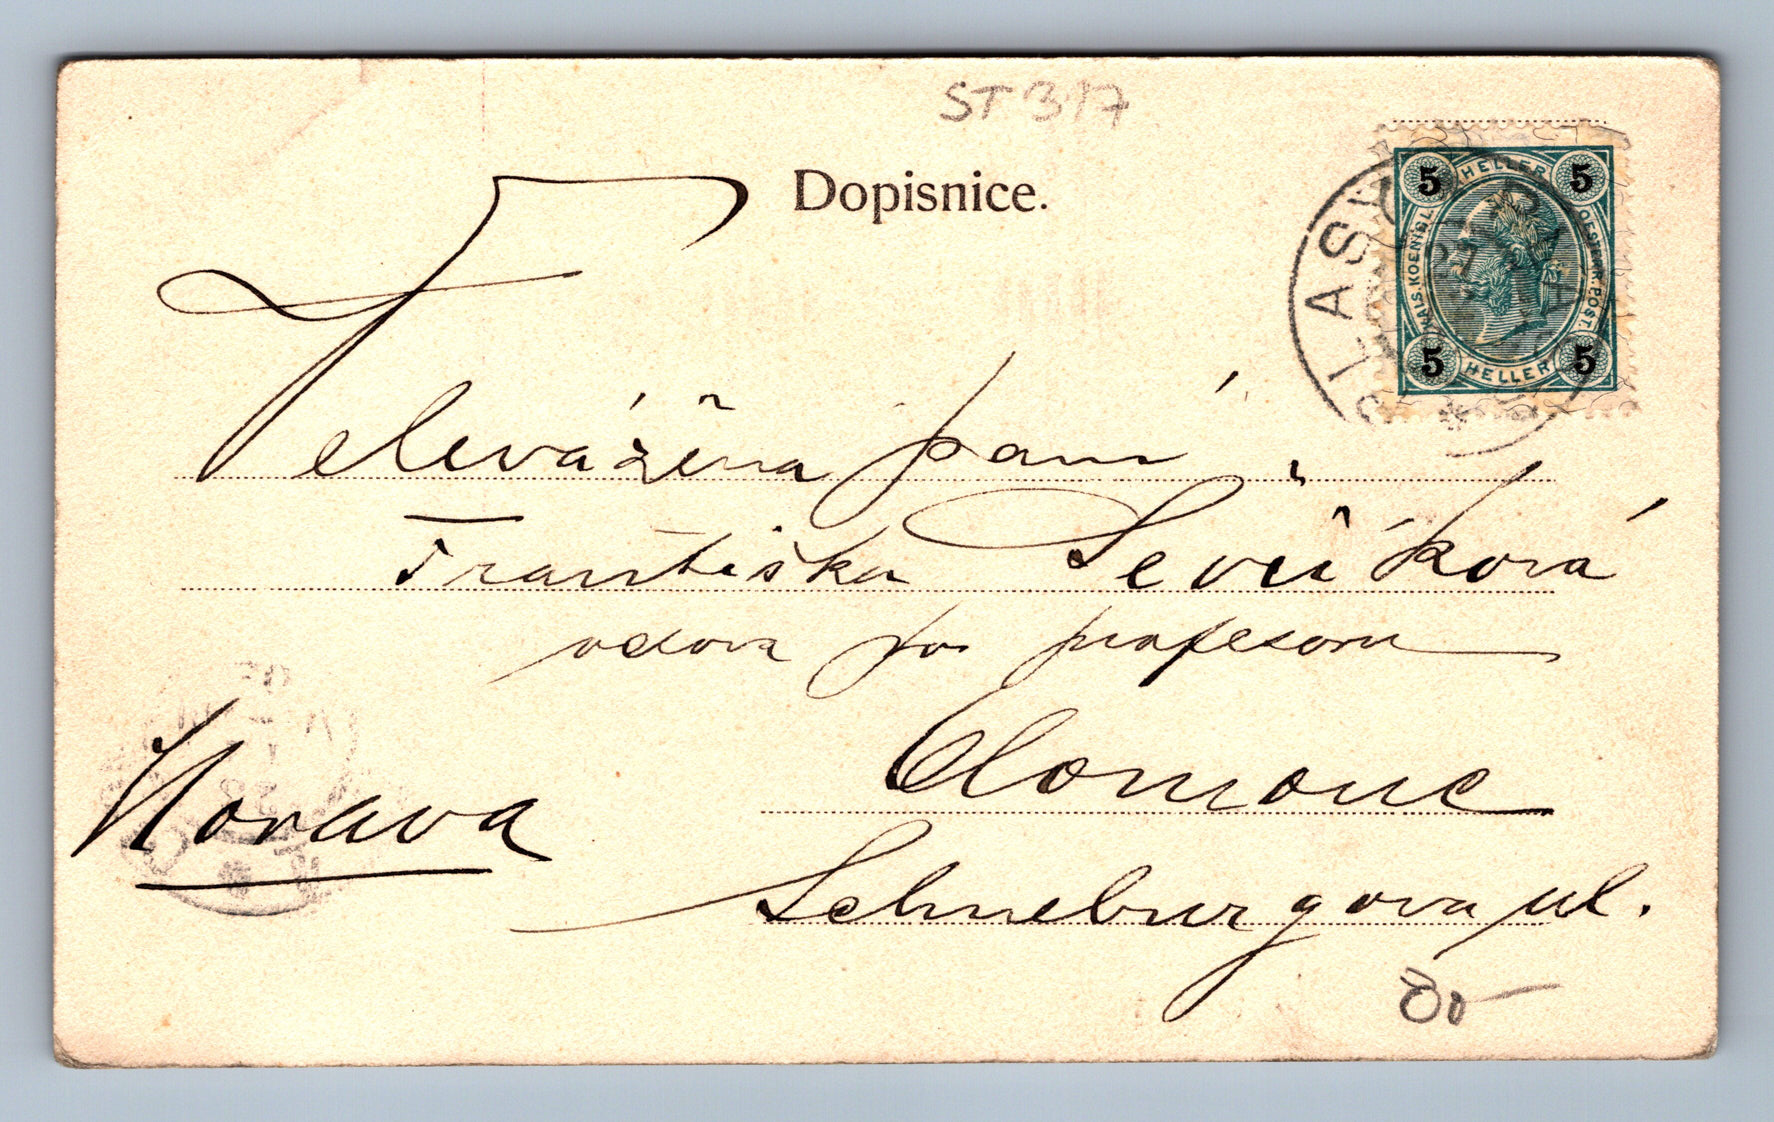 ST 317
Dopisnice.
5 HELLER 5
KAIS. KOENIGL. OESTERR. POST.
5 HELLER 5
PLASY
Velevážená paní
Františka Ševčíková
vdova po profesoru
Olomouc
Morava
Schneburgova ul.
80-